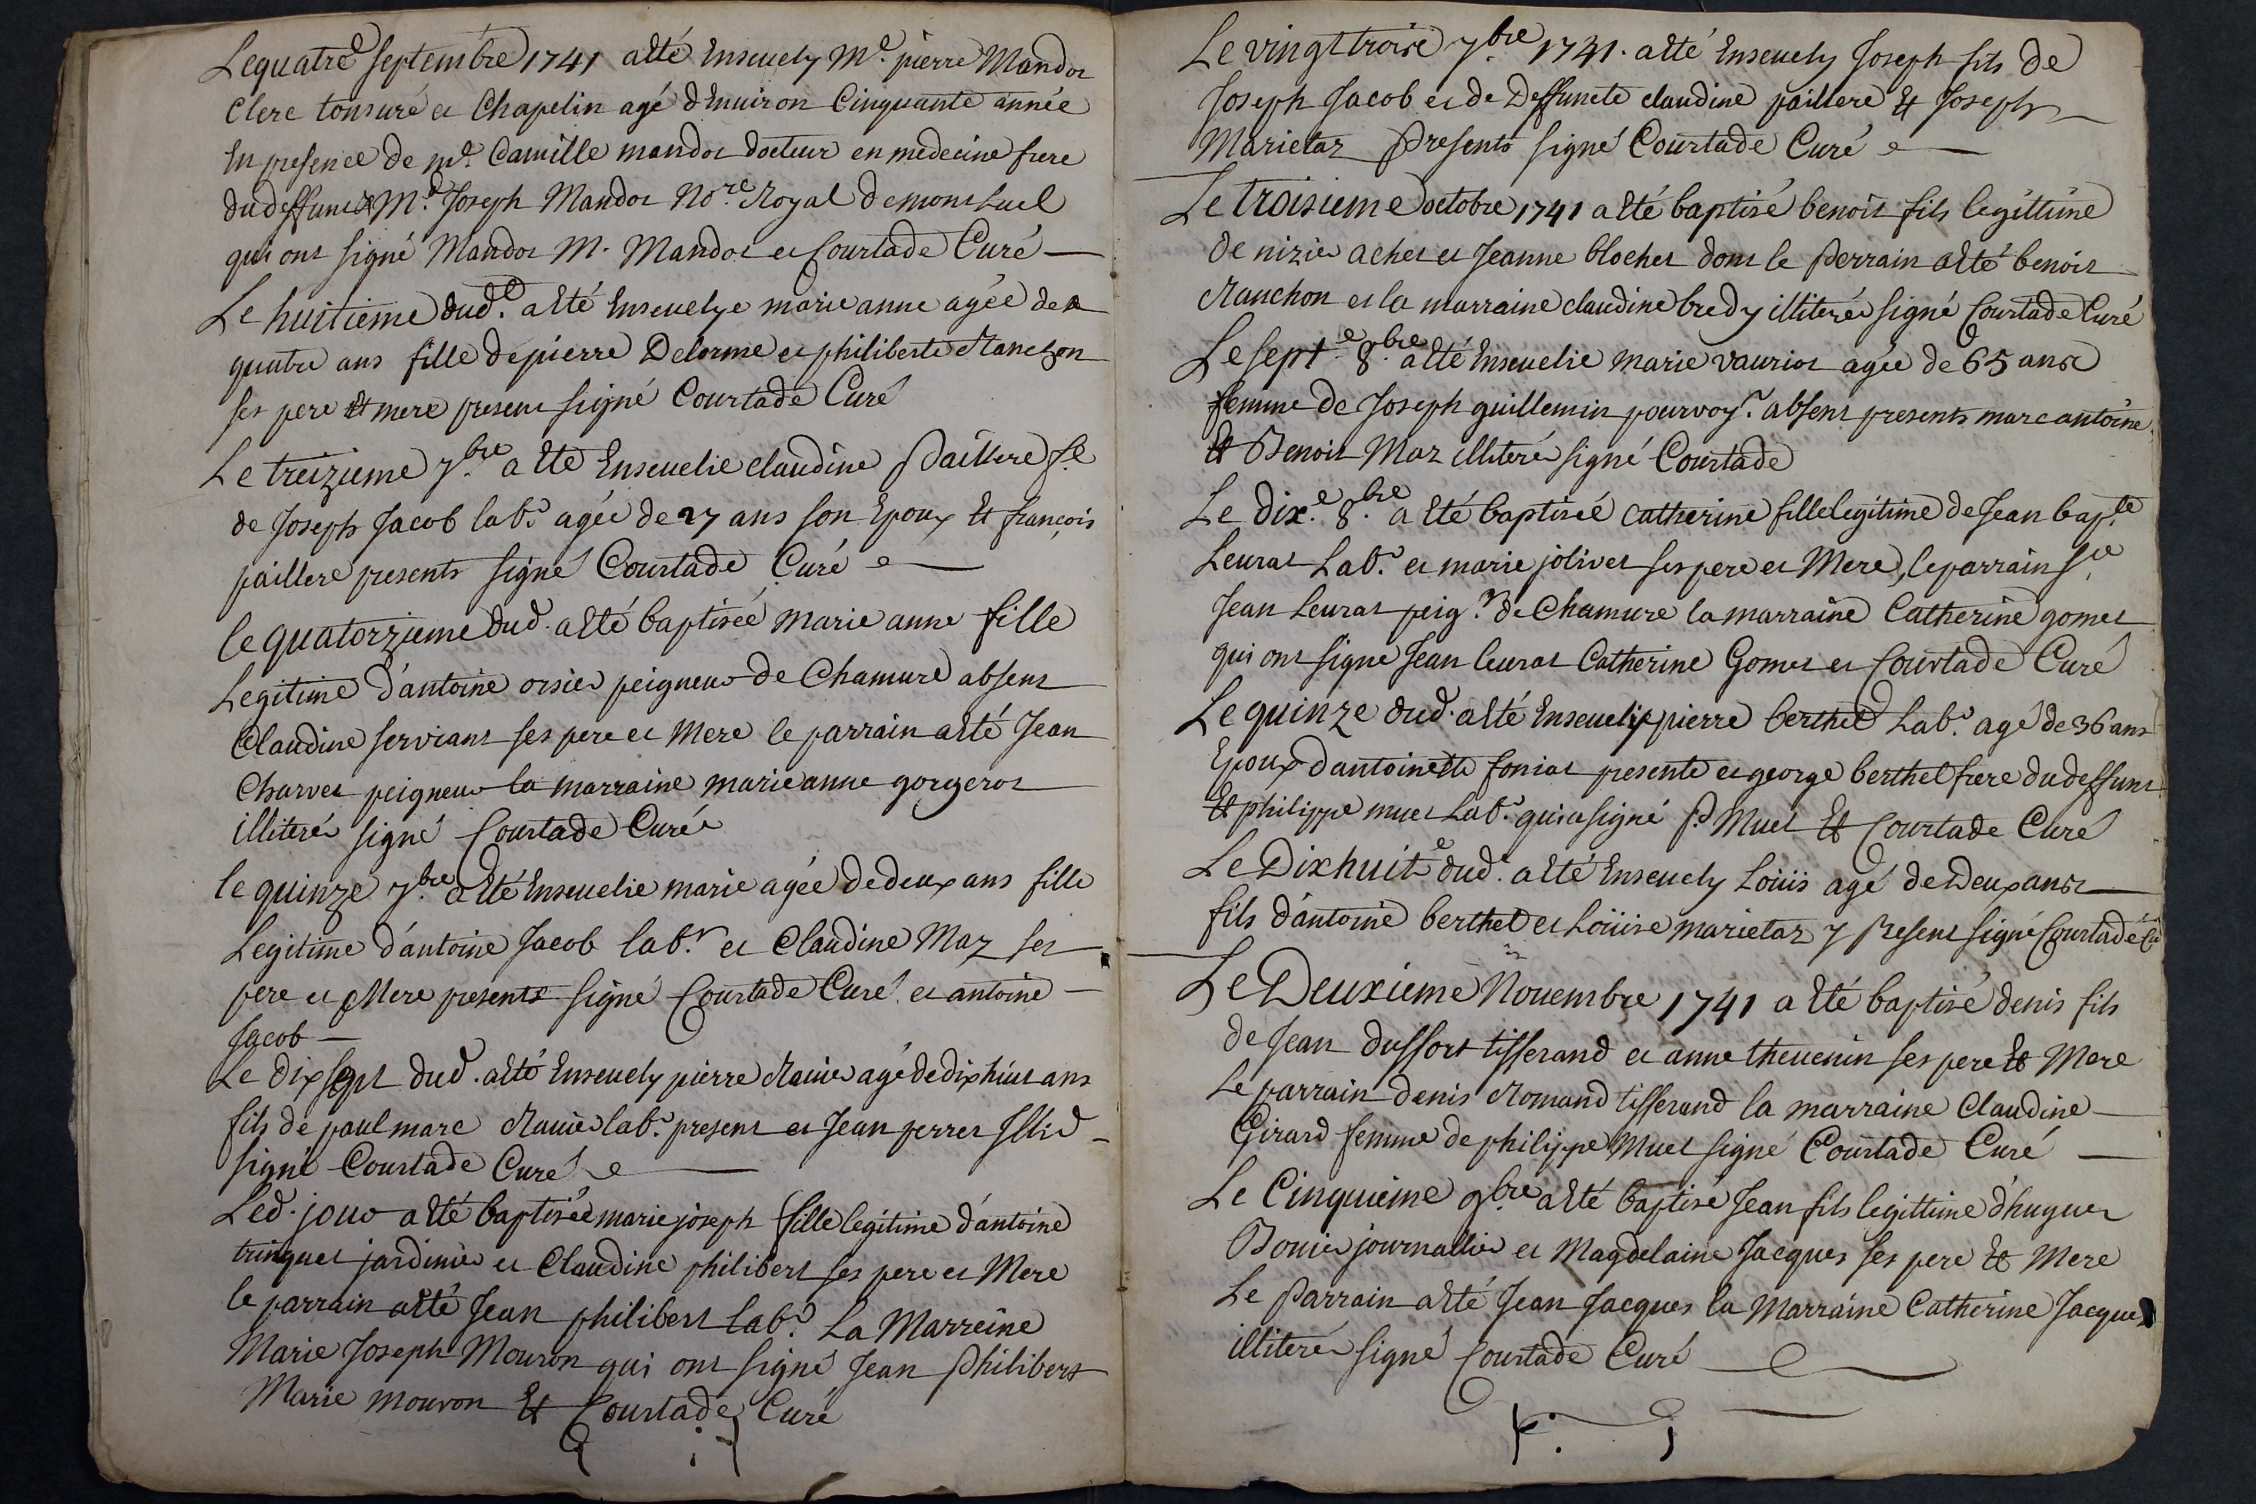 Le quatre septembre 1741 a esté Enseuely Me. pierre Mandot
Clerc tonsuré et Chapelin agé d'Enuiron Cinquante année
En presence de me. Camille mandot docteur en medecine frere
du deffunct & Me. Joseph Mandot Nore. Royal de montluel
qui ont signé Mandot M. Mandot et Courtade Curé
Le huitieme dud. a esté Enseuelye marie anne agée de
quatre ans fille de pierre Delorme et philiberte
ses pere et mere present signé Courtade Curé
Le treizieme 7bre a esté Enseuelie claudine paillere fe
de Joseph Jacob labr. agée de 27 ans son Epoux Et françois
paillere presents signé Courtade Curé
le quatorzieme dud. a esté baptisée marie anne fille
Legitime d'antoine orsier peigneur de Chamure absent
Claudine serviant ses pere et Mere le parrain a esté Jean
Charvet peigneur la marraine marie anne gorgerot
illiterés signé Courtade Curé
le quinze 7bre a esté Enseuelie marie agée de deux ans fille
Legitime d'antoine Jacob labr. et Claudine Maz ses
pere et Mere presents signé Courtade Curé et antoine
Jacob
Le dix sept dud. a esté Enseuely pierre Rauier agé de dix huit ans
fils de paul marc Rauier labr. present et Jean perret Illid
signé Courtade Curé
Led. jour a esté baptisée marie joseph fille legitime d'antoine
trinquet jardinier et Claudine philibert ses pere et Mere
le parrain a esté Jean philibert labr. La Marreine
Marie Joseph Mouron qui ont signé Jean philibert
Marie mouron Et Courtade Curé
Le vingt troise 7bre 1741. a esté Enseuely Joseph fils de
Joseph Jacob et de Deffuncte claudine paillere Et Joseph
Marietaz presents signé Courtade Curé
Le troisieme octobre 1741 a esté baptisé benoit fils legittime
de nizier achet et Jeanne blochet dont le perrain a esté benoit
Ranchon et la marraine claudine bredy illiterés signé Courtade Curé
Le septe. 8bre a esté Enseuelie marie vauriot agée de 65 ans
femme de Joseph guillemin pourvoyr. absent presents marc antoine
Et Benoit Maz illiterés signé Courtade
Le dixe. 8bre a esté baptisée catherine fille legitime de Jean bapte
Leurat Labr. et marie jolivet ses pere et Mere, le parrain Sr
Jean Leurat peigr. de Chamure la marraine Catherine gomet
qui ont signé Jean leurat Catherine Gomet et Courtade Curé
Le quinze dud. a esté Enseuely pierre berthet Labr. agé de 36 ans
Epoux d'antoinette foniat presente et george berthet frere du deffunt
Et philippe muet Labr. qui a signé p. Muet Et Courtade Curé
Le Dixhuite dud. a esté Enseuely Loüis agé de Deux ans
fils d'antoine berthet et Loüise marietaz y present signé Courtade Cé
Le Deuxieme Nouembre 1741 a esté baptisé denis fils
de Jean duffort tisserand et anne theuenin ses pere Et Mere
Le parrain denis Romand tisserand la marraine Claudine
Girard femme de philippe Muet signé Courtade Curé
Le Cinquieme 9bre a esté baptisé Jean fils legittime d'hugues
Bouier journallier et Magdelaine Jacques ses pere Et Mere
Le parrain a esté Jean Jacques la Marraine Catherine Jacques
illiterés signé Courtade Curé